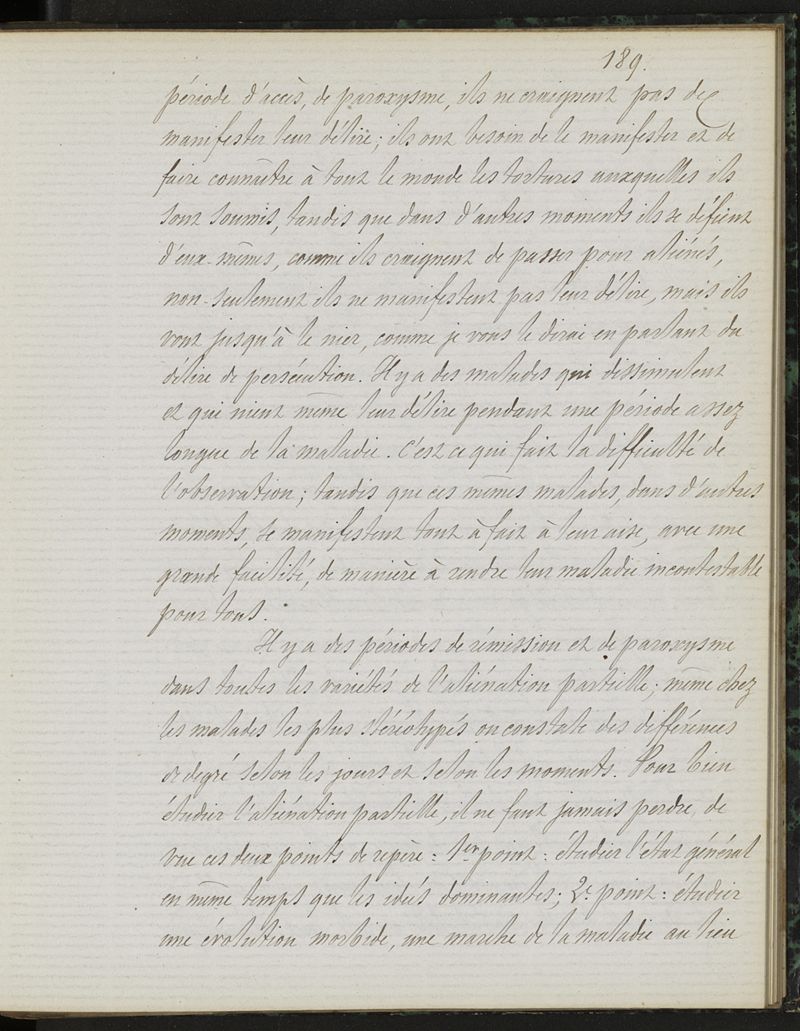 189.
période d'accès, de paroxysme, ils ne craignent pas de
manifester leur délire; ils ont besoin de le manifester et de
faire connaître à tout le monde les tortures auxquelles ils
sont soumis, tandis que dans d'autres moments ils se défient
d'eux-mêmes, comme ils craignent de passer pour aliénés,
non-seulement ils ne manifestent pas leur délire, mais ils
vont jusqu'à le nier, comme je vous le dirai en parlant du
délire de persécution. Il y a des malades qui dissimulent
et qui nient même leur délire pendant une période assez
longue de la maladie. C'est ce qui fait la difficulté de
l'observation; tandis que ces mêmes malades, dans d'autres
moments, se manifestent tout à fait à leur aise, avec une
grande facilité, de manière à rendre leur maladie incontestable
pour tous.
Il y a des périodes de rémission et de paroxysme
dans toutes les variétés de l'aliénation partielle; même chez
les malades les plus stéréotypés on constate des différences
de degré selon les jours et selon les moments. Pour bien
étudier l'aliénation partielle, il ne faut jamais perdre de
vue ces deux points de repère: 1er point: étudier l'état général
en même temps que les idées dominantes; 2e point: étudier
une évolution morbide, une marche de la maladie au lieu